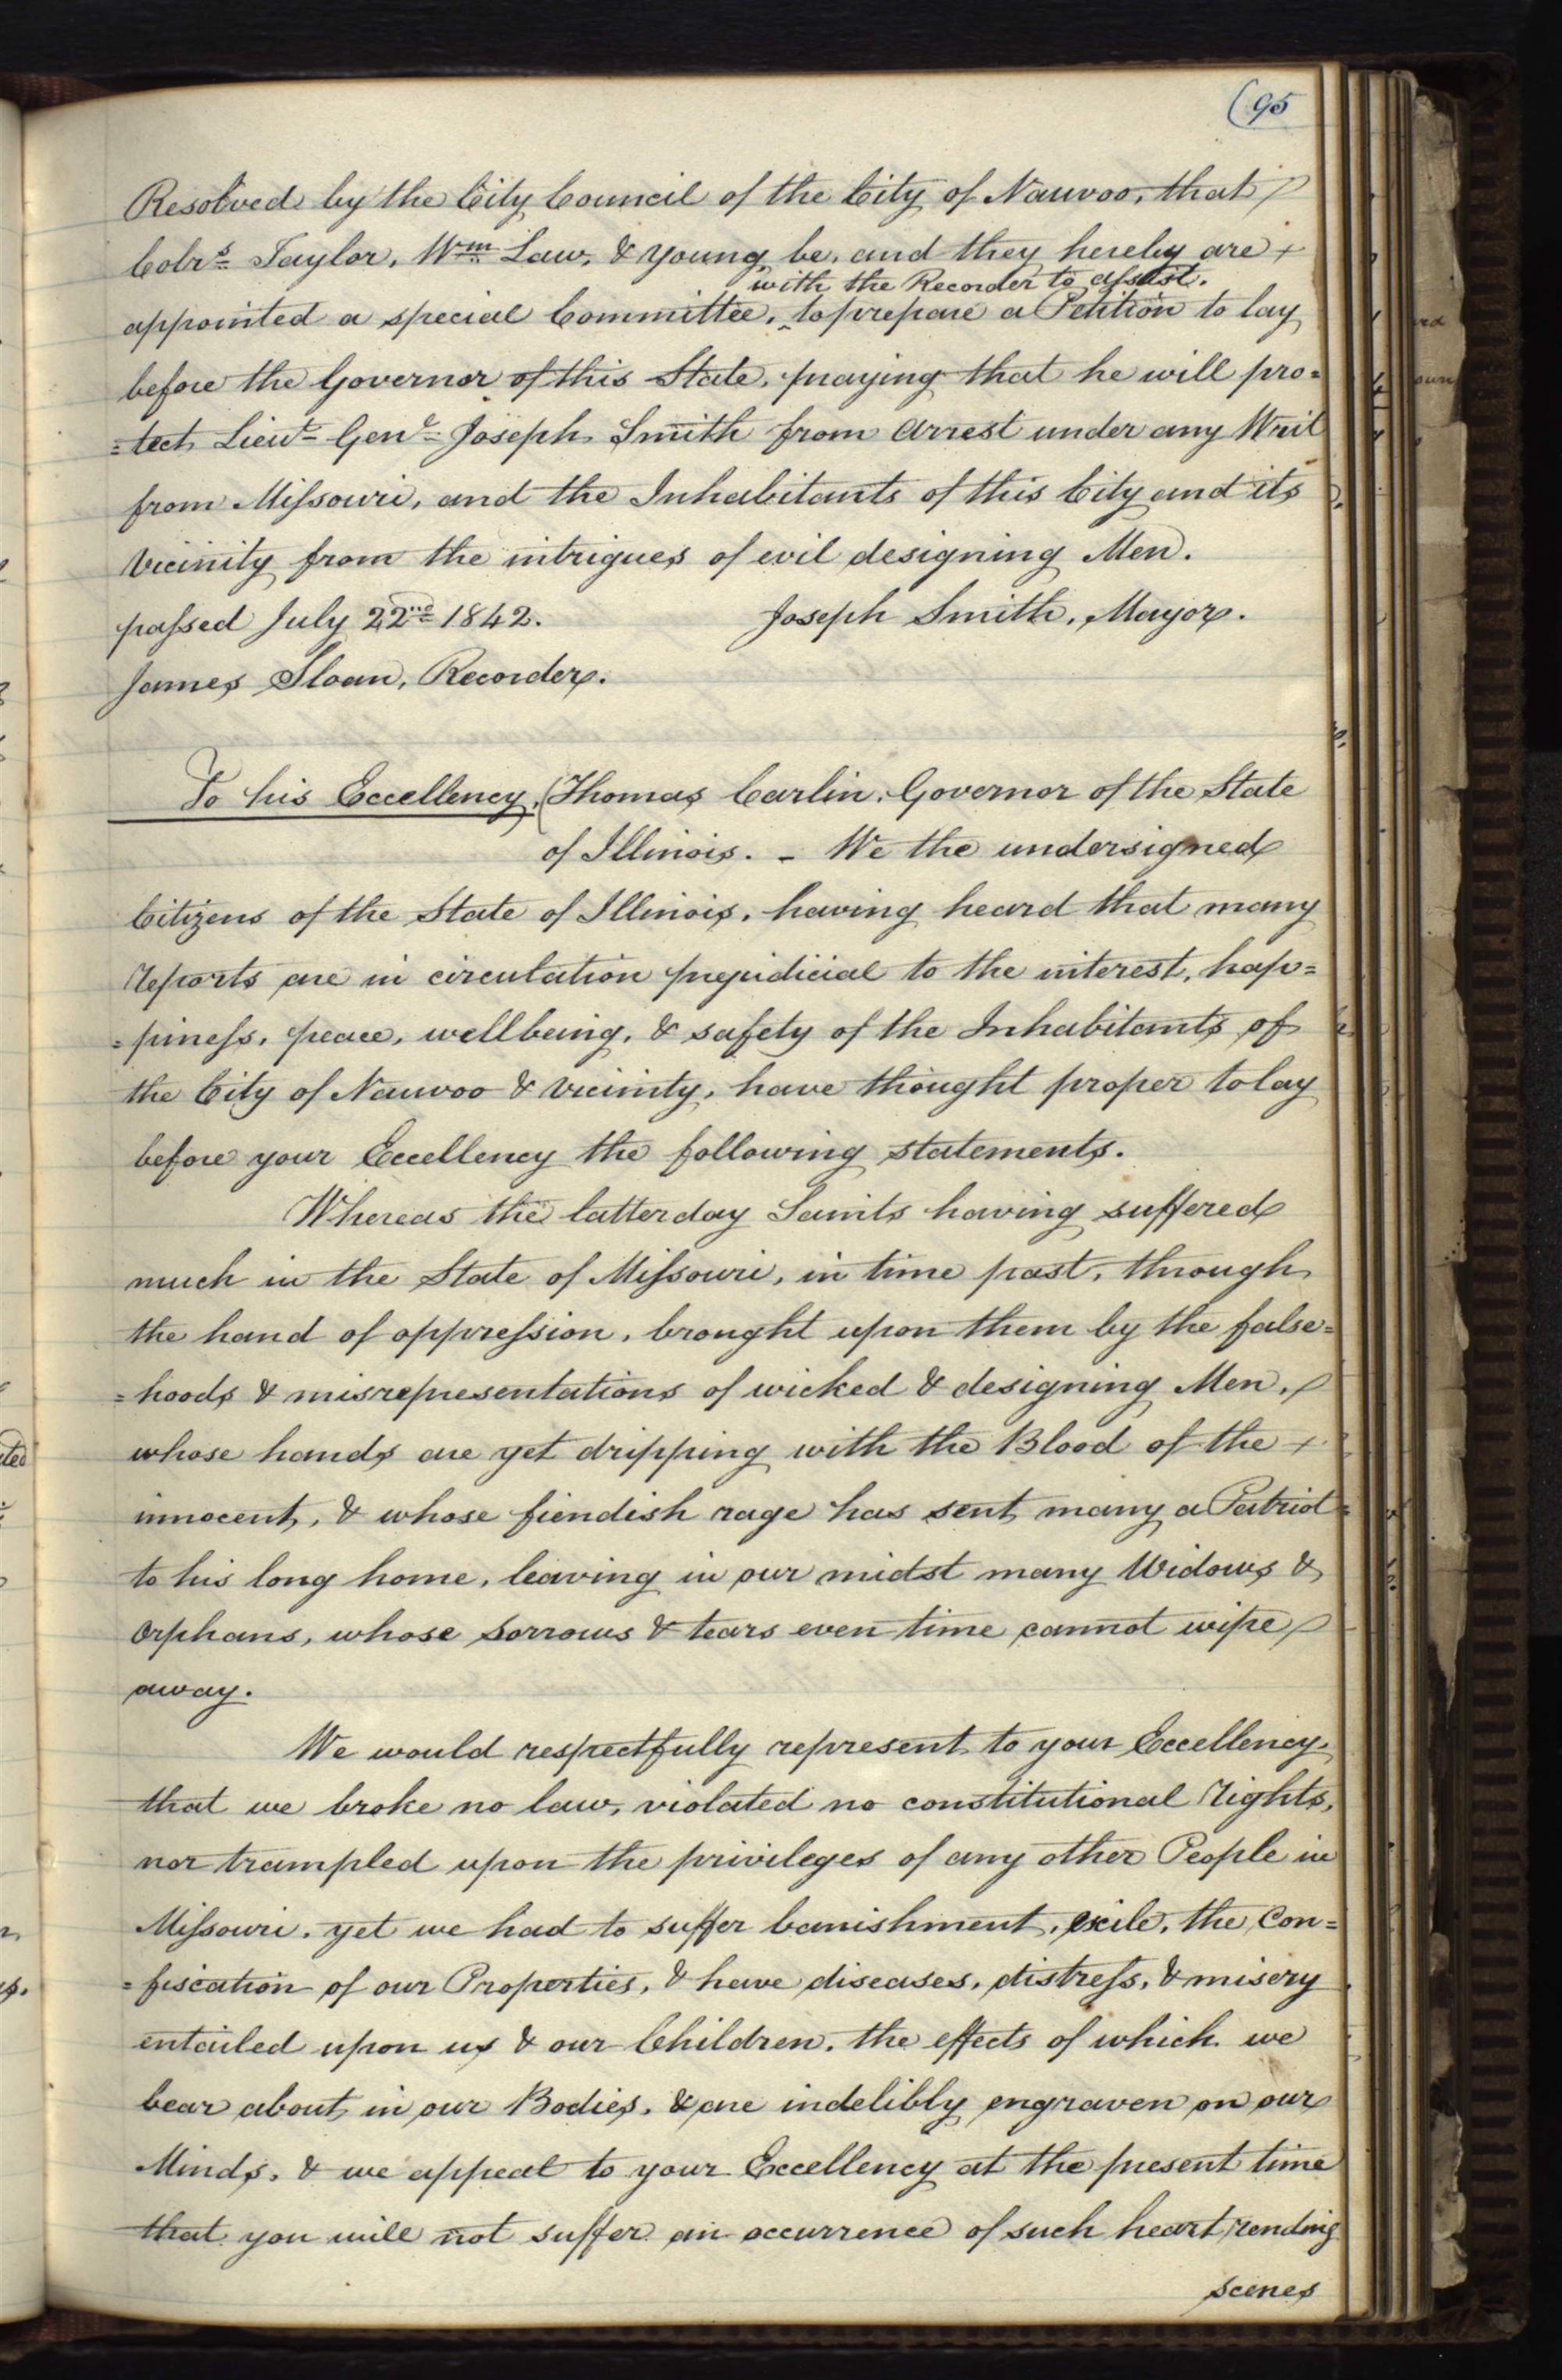 (95
Resolved by the City Council of the City of Nauvoo, that
Colrs. Taylor, Wm. Law, & Young, be, and they hereby are
with the Recorder to assist.
appointed a special Committee, ^ to prepare a Petition to lay
before the Governor of this State, praying that he will pro=
=tect Lieut. Genl. Joseph Smith from Arrest under any Writ
from Missouri, and the Inhabitants of this City and its
Vicinity from the intrigues of evil designing Men.
passed July 22nd. 1842. Joseph Smith, Mayor.
James Sloan, Recorder.
To his Excellency, (Thomas Carlin, Governor of the State
of Illinois. - We the undersigned
Citizens of the State of Illinois, having heard that many
reports are in circulation prejudicial to the interest, hap=
=piness, peace, wellbeing, & safety of the Inhabitants of
the City of Nauvoo & Vicinity, have thought proper to lay
before your Excellency the following statements.
Whereas the latter day Saints having suffered
much in the State of Missouri, in time past, through
the hand of oppression, brought upon them by the false=
=hoods & misrepresentations of wicked & designing Men,
whose hands are yet dripping with the Blood of the
innocent, & whose fiendish rage has sent many a Patriot
to his long home, leaving in our midst many Widows &
Orphans, whose sorrows & tears even time cannot wipe
away.
We would respectfully represent to your Excellency,
that we broke no law, violated no constitutional rights,
nor trampled upon the privileges of any other People in
Missouri, yet we had to suffer banishment, exile, the Con=
=fiscation of our Properties, & have diseases, distress, & misery
entailed upon us & our Children, the effects of which we
bear about in our Bodies, & are indelibly engraven on our
Minds, & we appeal to your Excellency at the present time
that you will not suffer an occurrence of such heart rending
scenes